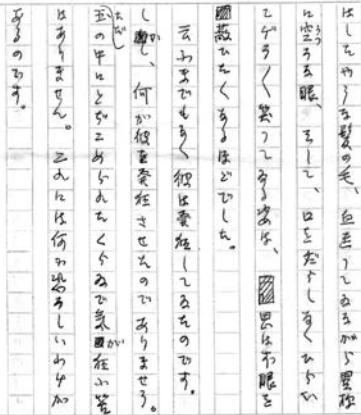 はしたやうな髪の毛、血走つてゐながら異様
に空ろな眼、そして、口をだらしなくひらい
てゲラ〱笑つてゐる姿は、思はず眼を
蔽ひたくなるほどでした。
云ふまでもなく彼は発狂してゐたのです。
しかし、何が彼を発狂させたのでありませう。
玉の中にとぢこめられたくらゐで気が狂ふ筈
はありません。これには何か恐ろしいわけが
あるのです。